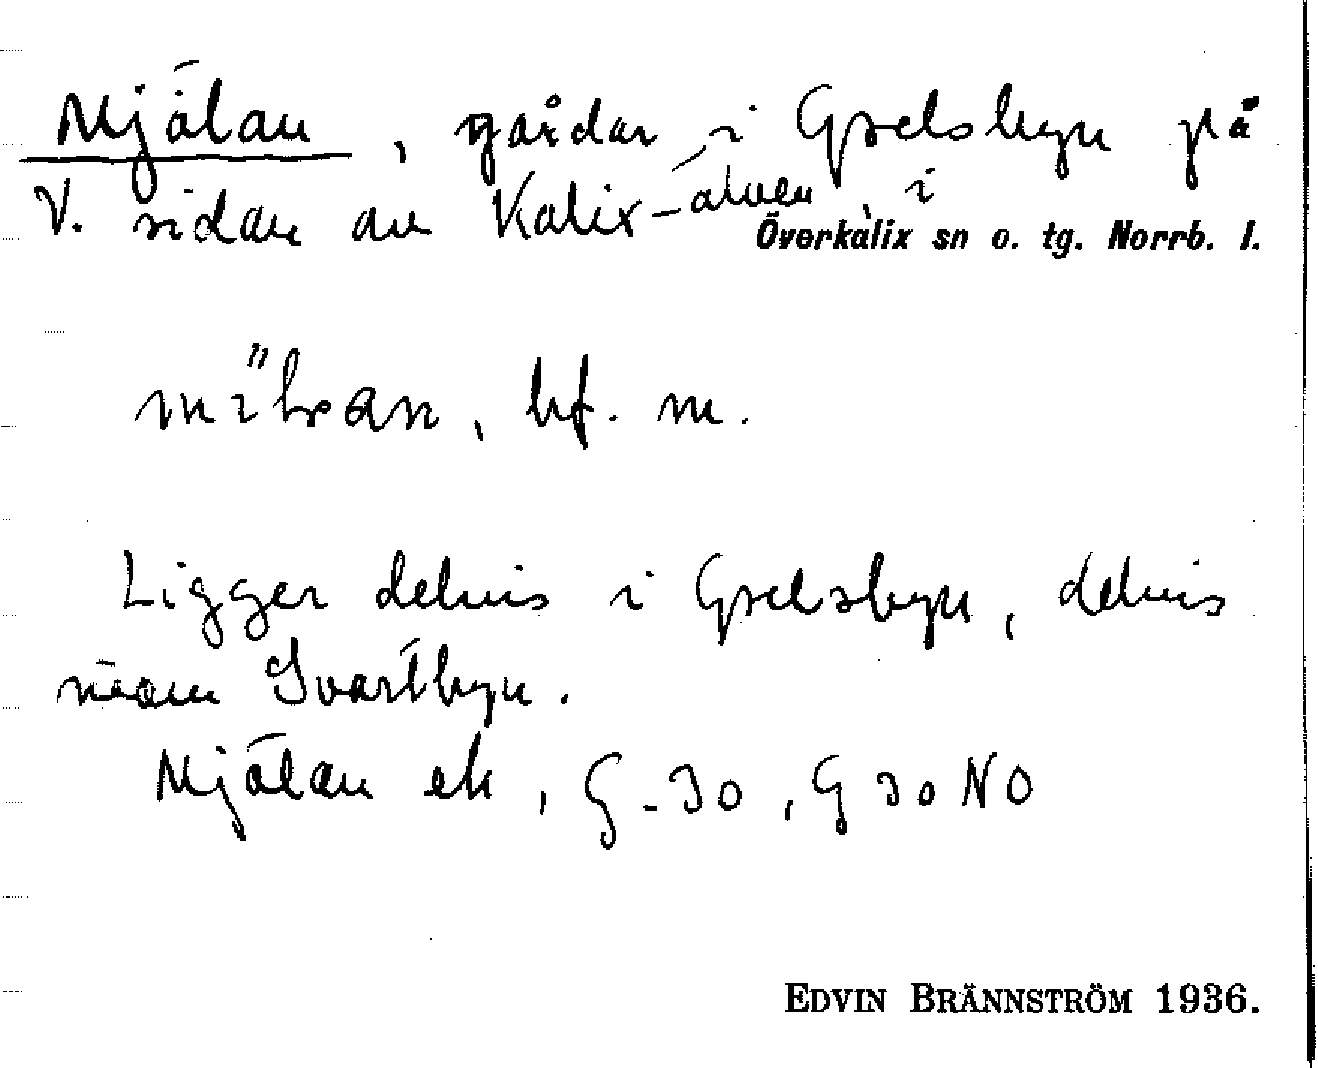 Mjälan, gårdar i Grelsbyn på
V. sidan av Kalix-älven, i
Överkalix sn o. tg. Norrb. l.
bf. m.
Ligger delvis i Grelsbyn, delvis
inom Svartbyn.
Mjälan ek, G-30, G 30 NO
EDVIN BRÄNNSTRÖM 1936.